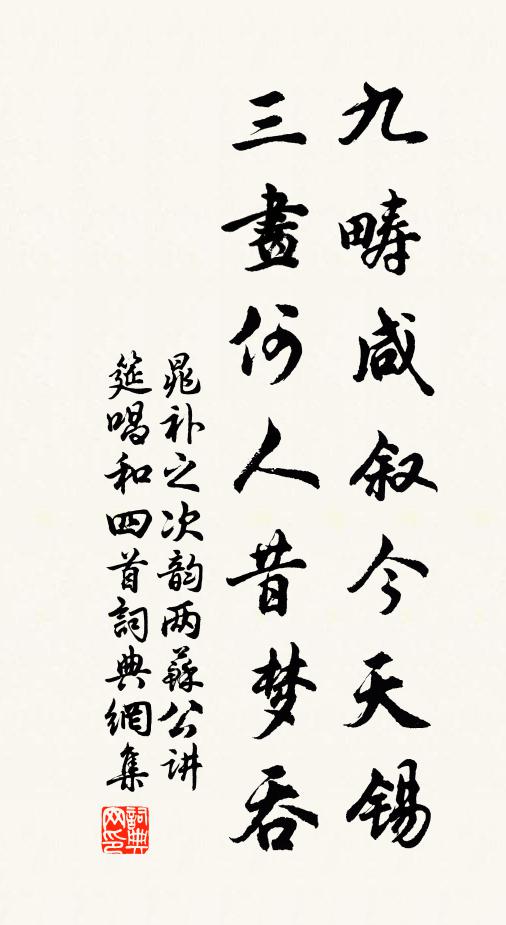 九畴咸叙今天锡
三畫何人昔梦吞
晁补之次韵两蘇公讲
筵唱和四首詞典網集
詞典网印